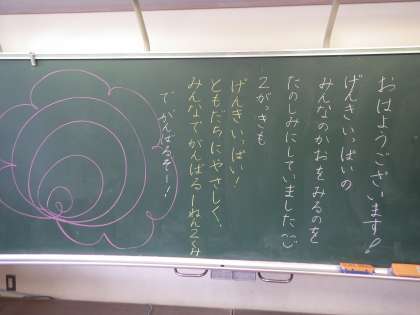 おはようございます!
げんきいっぱいの
みんなのかおをみるのを
たのしみにしていました
2がっきも
げんきいっぱい!
ともだちにやさしく、
みんなでがんばる一ねん2くみ
で がんばるぞー!